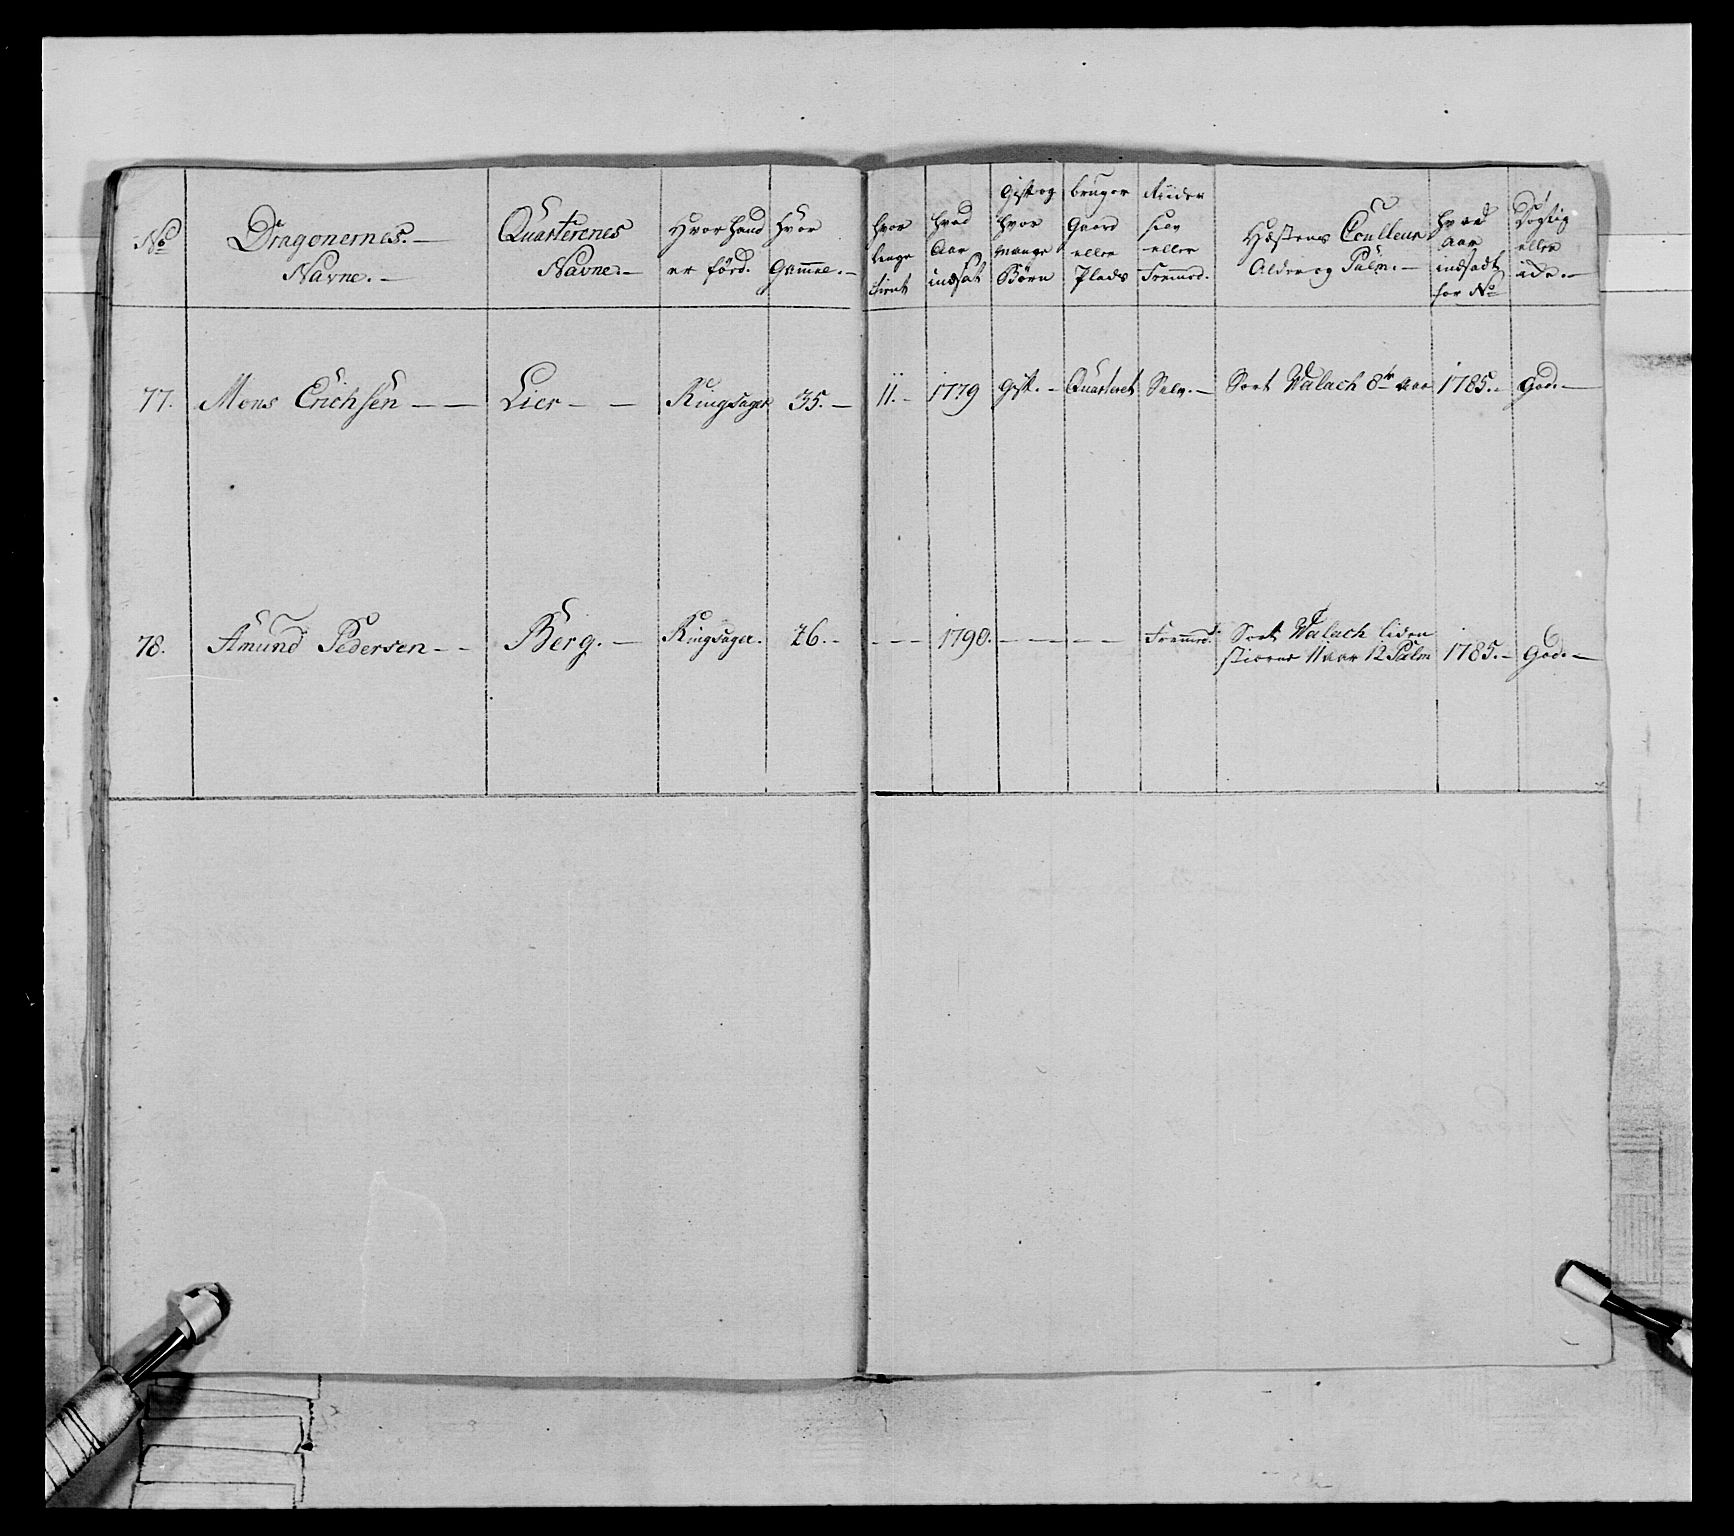 No
Dragonernes.—
Navne.—
Quarterenes
Navne.—
Hvor hand
er förd.
Hvor
Gammel.—
hvor
lenge
tient
hvad
Aar
indsat
Gift og
hvor
mange
Börn
bruger
Gaard
eller
Plads
Riider
selv
eller
Fremed.
Hæstens Coulleur
Alder og Palm.—
hvad
Aar
indsadt
for No
Dögtig
eller
ide.—
77. Mons Erichsen — — Lier — — Ringsager 35.— 11.— 1779 Gift.— Quarteret Selv.— Sort Walach 8te Aar 1785.— God.—
78. Amund Pedersen — — Berg.— Ringsager. 26.— — — — 1790.— — — — — Fremed. Sort Walach liden
stierne 11 aar 12 Palm 1785.— God.—